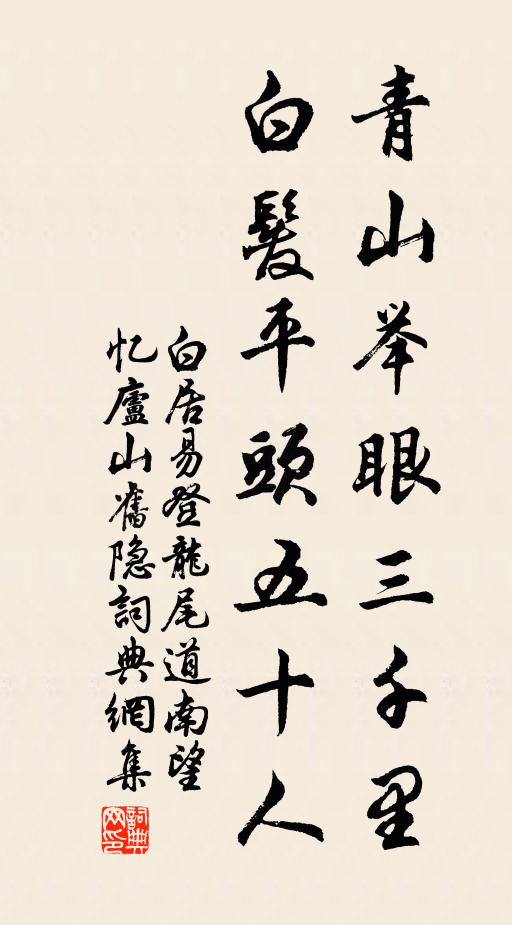 青山举眼三千里
白髮平頭五十人
白居易登龍尾道南望
忆廬山舊隐詞典網集
詞典
网印